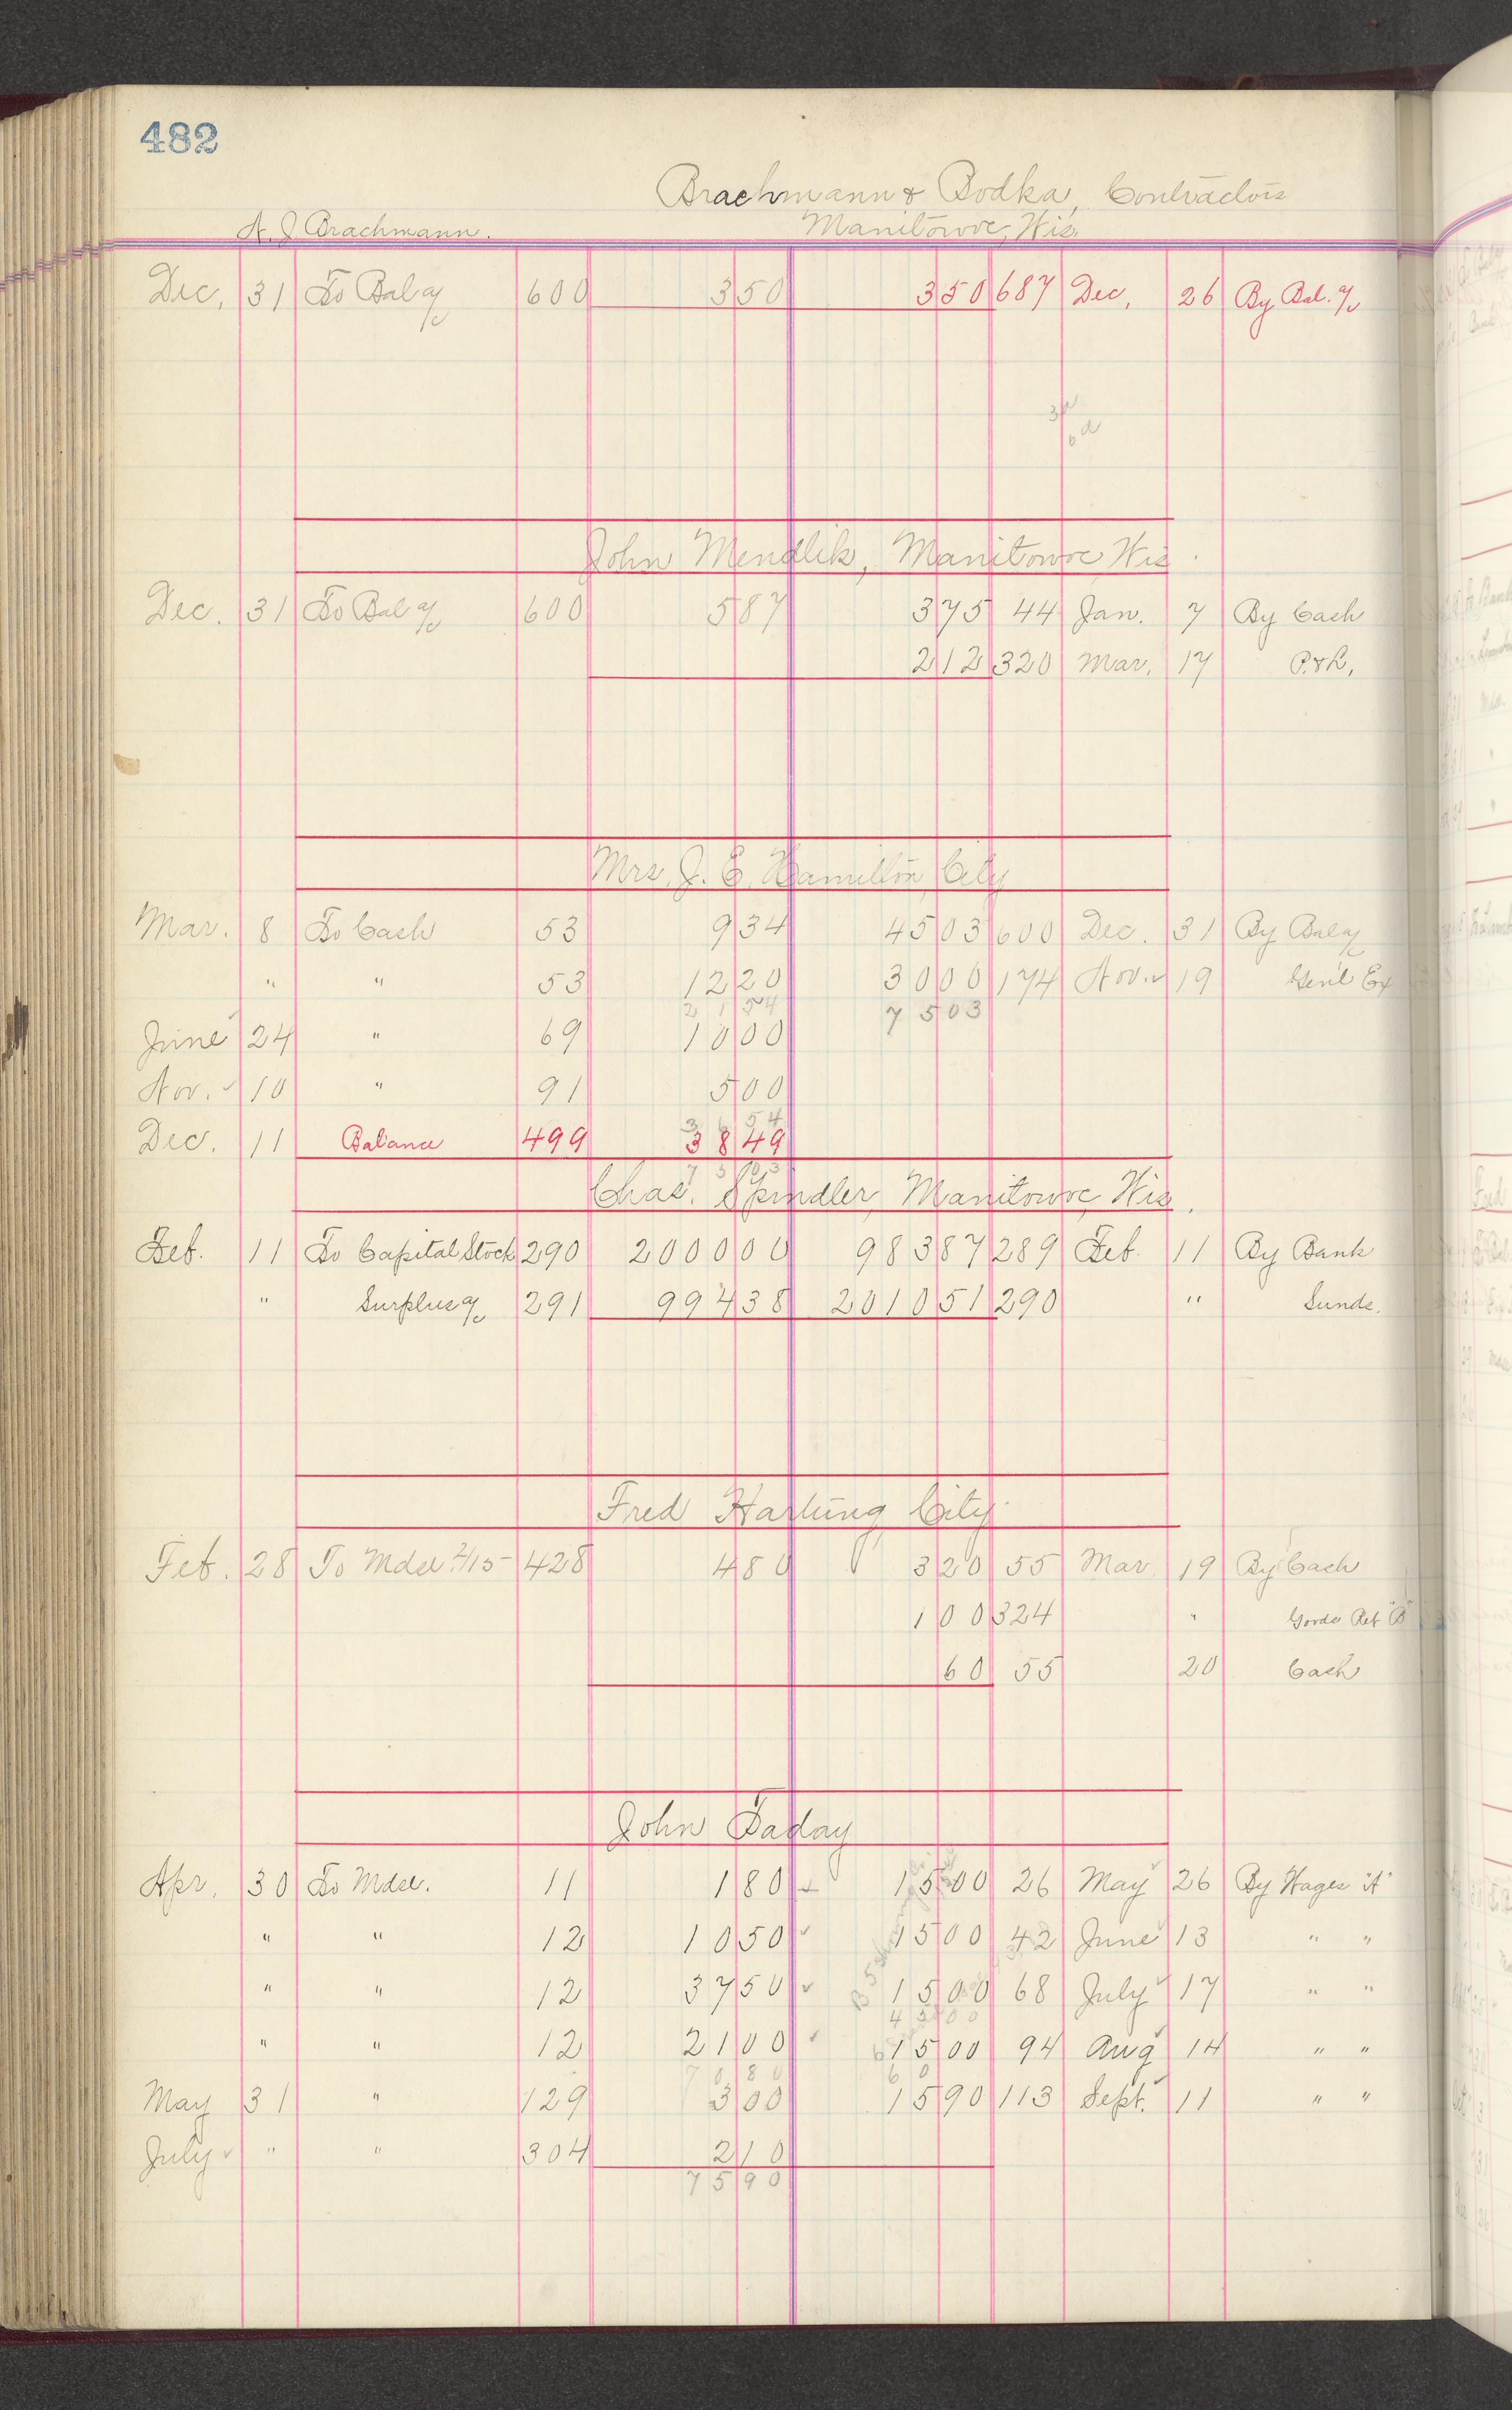 482
Brachmann & Bodka, Contractors
A. J. Brachmann. Manitowoc, Wis.
Dec. 31 To Bal a/c 600 3 50 3 50 687 Dec. 26 By Bal. a/c
John Mendlik, Manitowoc Wis.
Dec. 31 To Bal a/c 600 5 87 3 75 44 Jan. 7 By Cash
2 12 320 Mar. 17 P. & L.
Mrs. J. E. Hamilton, City
Mar. 8 To Cash 53 9 34 45 03 600 Dec. 31 By Bal a/c
" " 53 12 20 30 00 174 Nov. 19 Gen'l Ex
21 54 75 03
June 24 " 69 10 00
Nov. 10 " 91 5 00
36 54
Dec. 11 Balance 499 38 49
75 03
Chas. Spindler, Manitowoc, Wis.
Feb. 11 To Capital Stock 290 2000 00 983 87 289 Feb. 11 By Bank
" Surplus a/c 291 994 38 2010 51 290 " Sunds.
Fred Hartung City
Feb. 28 To Mdse 2/15 - 428 4 80 3 20 55 Mar 19 By Cash
1 00 324 " Goods Ret "B"
60 55 20 Cash
John Taday
Apr. 30 To Mdse. 11 1 80 15 00 26 May 26 By Wages "A"
" " 12 10 50 15 00 42 June 13 " "
" " 12 37 50 15 00 68 July 17 " "
45 00
" " 12 21 00 15 00 94 Aug 14 " "
70 80 60
May 31 " 129 3 00 15 90 113 Sept. 11 " "
July " " 304 2 10
75 90